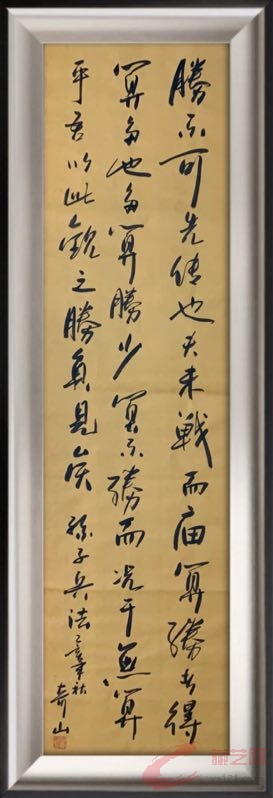 勝不可先傳也夫未戰而庙算勝者得
算多也多算勝少算不勝而况于無算
乎吾以此觀之勝負見矣 孫子兵法 秋 奇山